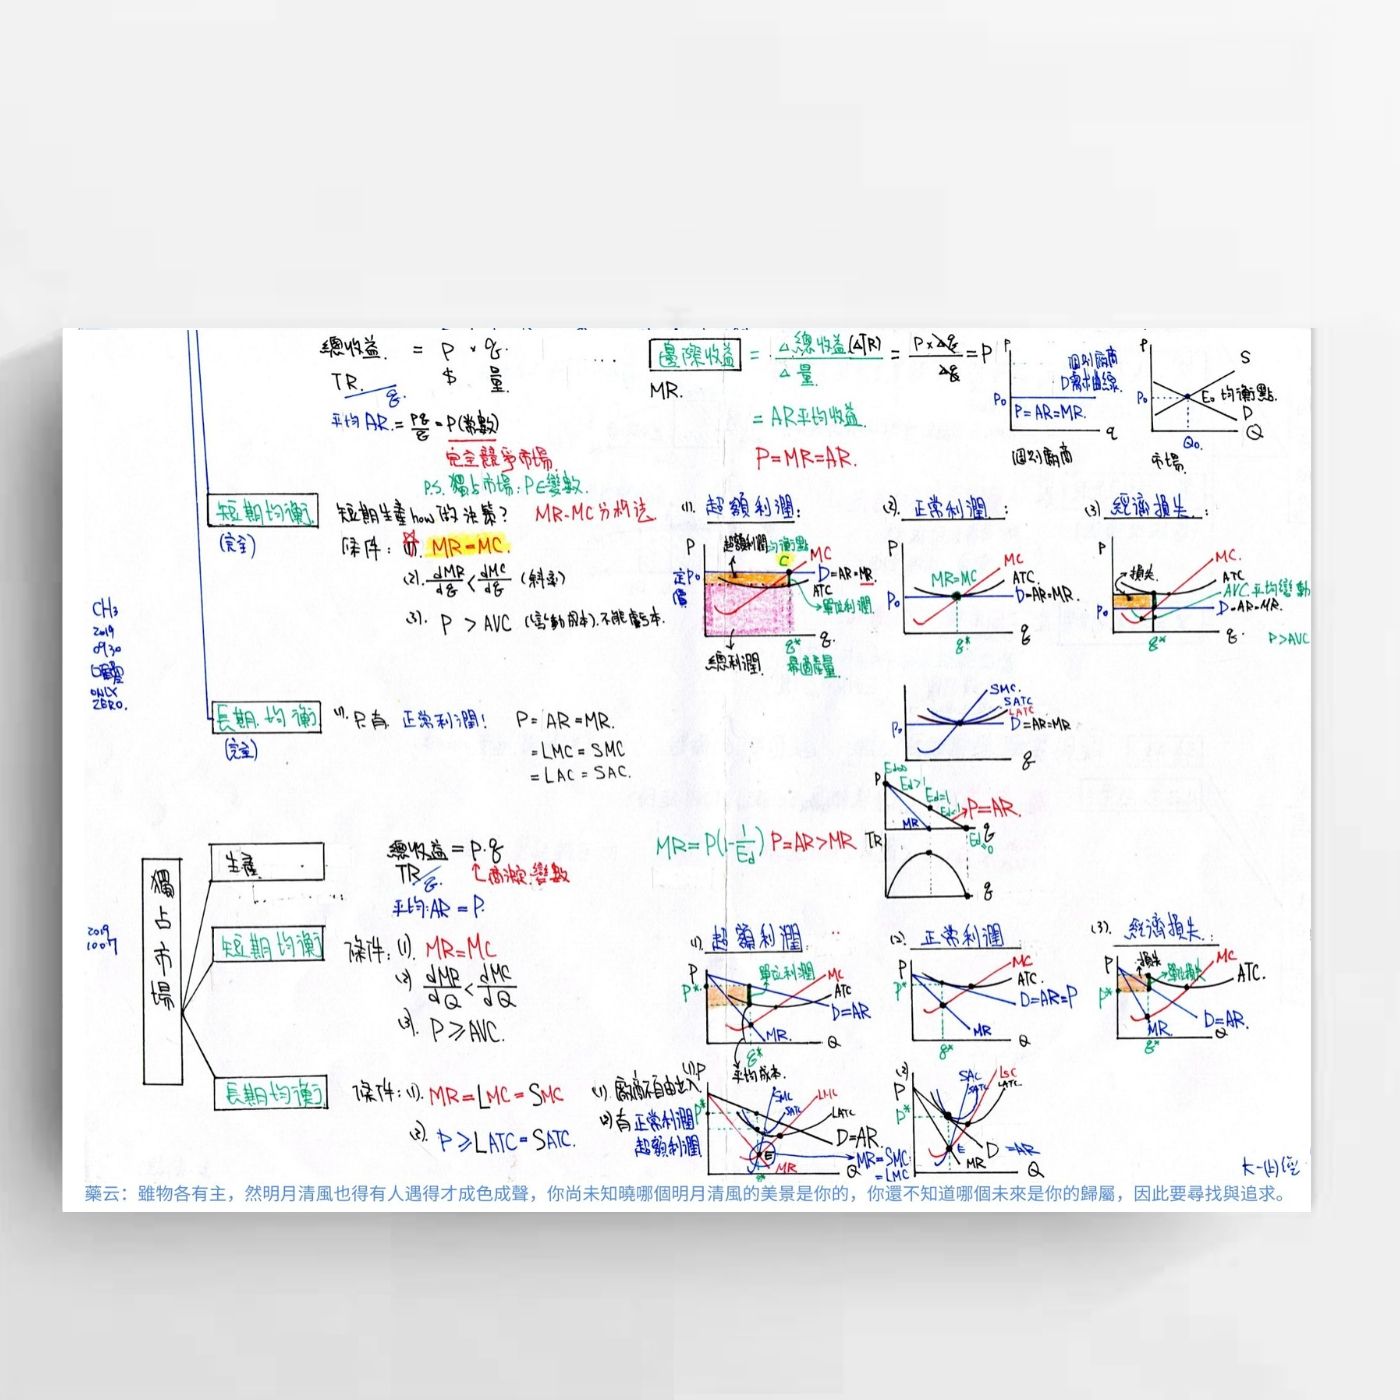 總收益 = P × q.
TR. $ 量.
q.
平均 AR. = Pq/q = P(常數)
完全競爭市場.
P.S. 獨占市場:P∈變數.
邊際收益 = Δ總收益(ΔTR)/Δ量. = P×Δq/Δq = P
MR.
= AR平均收益.
P=MR=AR.
P
個別廠商
D需求曲線.
P₀
P=AR=MR.
q
個別廠商
P
S
P₀
E₀ 均衡點.
D
Q₀. Q
市場.
短期均衡
(完全)
短期生產 how 做決策? MR-MC分析法
條件:(1). MR=MC.
(2). dMR/dq < dMC/dq (斜率)
(3). P > AVC (變動成本).不能虧本.
(1). 超額利潤:
P
超額利潤 均衡點
C
MC
定P₀
價
D=AR=MR.
ATC
單位利潤
q* q.
總利潤. 最適產量.
(2). 正常利潤:
P
MC
MR=MC
ATC.
P₀
D=AR=MR.
q* q
(3) 經濟損失:
P
損失.
MC.
ATC
AVC.平均變動
P₀
D=AR=MR.
q* q.
P>AVC
CH3
2019
0930
ONLY
ZERO.
長期均衡
(完全)
(1). 只有 正常利潤! P= AR=MR.
=LMC=SMC
=LAC=SAC.
SMC.
SATC
LATC
P₀
D=AR=MR
q
獨占市場
2019
1007
生產
總收益=P.q
TR
q.
平均:AR=P.
MR=P(1-1/Ed) P=AR>MR
P
Ed=∞
Ed>1
Ed=1
Ed<1
P=AR.
MR
q
Ed=0
TR
q
短期均衡
條件:(1). MR=MC
(2) dMR/dQ < dMC/dQ
(3). P≥AVC.
(1) 超額利潤
P
單位利潤
MC
P*
ATC
D=AR
MR.
q* Q
平均成本.
(2). 正常利潤
P
MC
ATC.
P*
D=AR=P
MR
q* Q
(3). 經濟損失.
P
損失
單位損失
MC
ATC.
P*
MR. D=AR.
q* Q
長期均衡
條件:(1). MR=LMC=SMC
(2). P≥LATC=SATC.
(1). 廠商不自由出入
(2)有 正常利潤
超額利潤
(1).P
P*
SMC
SATC
LMC
LATC
D=AR.
E
MR
MR=SMC
=LMC
q* Q
(2)
P
P*
SATC
LATC.
E
D=AR
MR
Q
藥云：雖物各有主，然明月清風也得有人遇得才成色成聲，你尚未知曉哪個明月清風的美景是你的，你還不知道哪個未來是你的歸屬，因此要尋找與追求。